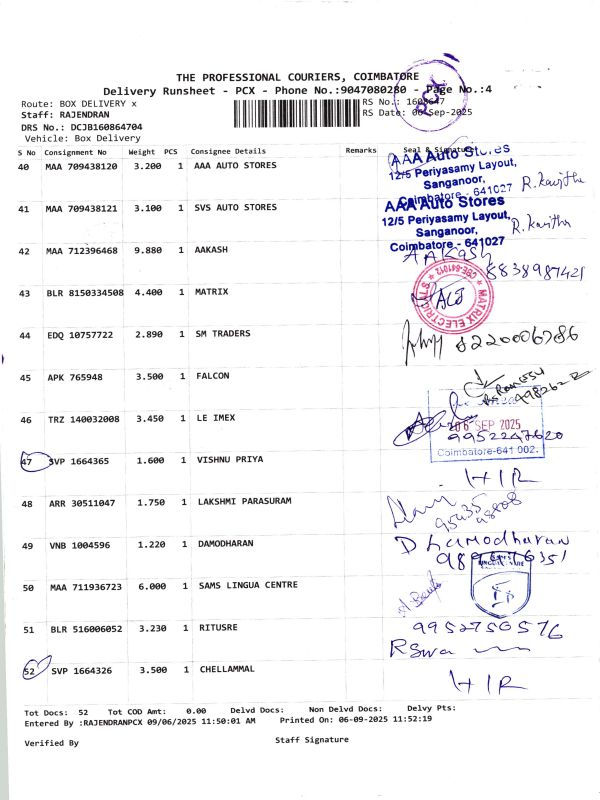 THE PROFESSIONAL COURIERS, COIMBATORE
Delivery Runsheet - PCX - Phone No.:9047080280 - Page No.:4
PCX
Route: BOX DELIVERY x
RS No.: 1608647
Staff: RAJENDRAN
RS Date: 06-Sep-2025
DRS No.: DCJB160864704
Vehicle: Box Delivery
S No Consignment No Weight PCS Consignee Details Remarks Seal & Signature
40 MAA 709438120 3.200 1 AAA AUTO STORES
AAA Auto Stores
12/5 Periyasamy Layout,
Sanganoor,
Coimbatore - 641027
R. Kavitha
41 MAA 709438121 3.100 1 SVS AUTO STORES
AAA Auto Stores
12/5 Periyasamy Layout,
Sanganoor,
Coimbatore - 641027
R. Kavitha
42 MAA 712396468 9.880 1 AAKASH
AAKASH
8838987421
43 BLR 8150334508 4.400 1 MATRIX
MATRIX ELECTRIC
CBE-641012
44 EDQ 10757722 2.890 1 SM TRADERS
8220006786
45 APK 765948 3.500 1 FALCON
46 TRZ 140032008 3.450 1 LE IMEX
06 SEP 2025
9952247620
Coimbatore-641 002.
47 SVP 1664365 1.600 1 VISHNU PRIYA
HIR
48 ARR 30511047 1.750 1 LAKSHMI PARASURAM
49 VNB 1004596 1.220 1 DAMODHARAN
Dhamodharan
50 MAA 711936723 6.000 1 SAMS LINGUA CENTRE
51 BLR 516006052 3.230 1 RITUSRE
9952750576
52 SVP 1664326 3.500 1 CHELLAMMAL
HIR
Tot Docs: 52 Tot COD Amt: 0.00 Delvd Docs: Non Delvd Docs: Delvy Pts:
Entered By :RAJENDRANPCX 09/06/2025 11:50:01 AM Printed On: 06-09-2025 11:52:19
Verified By Staff Signature